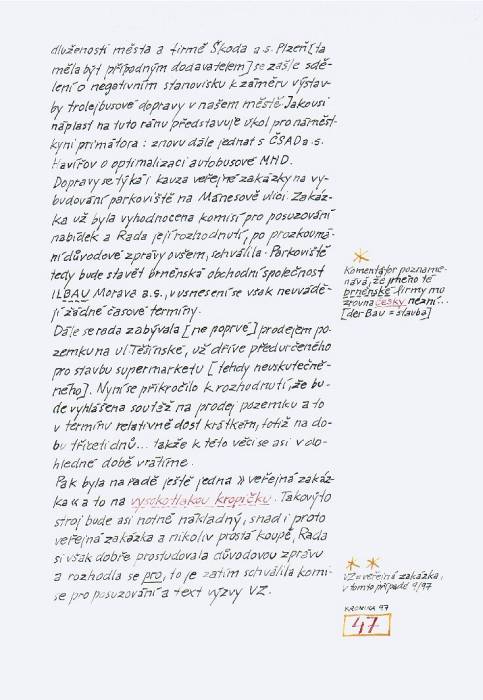 dluženosti města a firmě Škoda a.s. Plzeň [ta
měla být případným dodavatelem] se zašle sdě-
lení o negativním stanovisku k záměru výstav-
by trolejbusové dopravy v našem městě. Jakousi
náplast na tuto ránu představuje úkol pro náměst-
kyni primátora: znovu dále jednat s ČSAD a.s.
Havířov o optimalizaci autobusové MHD.
Dopravy se týká i kauza veřejné zakázky na vy-
budování parkoviště na Mánesově ulici. Zakáz-
ka už byla vyhodnocena komisí pro posuzování
nabídek a Rada její rozhodnutí, po prozkoumá-
ní důvodové zprávy ovšem, schválila. Parkoviště
tedy bude stavět brněnská obchodní společnost
ILBAU Morava a.s., v usnesení se však neuvádě-
jí žádné časové termíny.
Dále se rada zabývala [ne poprvé] prodejem po-
zemku na ul. Těšínské, už dříve předurčeného
pro stavbu supermarketu [tehdy neuskutečně-
ného]. Nyní se přikročilo k rozhodnutí, že bu-
de vyhlášena soutěž na prodej pozemku a to
v termínu relativně dost krátkém, totiž na do-
bu třiceti dnů... takže k této věci se asi v do-
hledné době vrátíme.
Pak byla na řadě ještě jedna » veřejná zakáz-
ka « a to na vysokotlakou kropičku. Takovýto
stroj bude asi notně nákladný, snad i proto
veřejná zakázka a nikoliv prostá koupě, Rada
si však dobře prostudovala důvodovou zprávu
a rozhodla se pro, to je zatím schválila komi-
se pro posuzování a text výzvy VZ.
Komentátor pozname-
nává, že jméno té
brněnské firmy mu
zrovna česky nezní...
[der Bau = stavba]
VZ = veřejná zakázka,
v tomto případě 9/97
KRONIKA 97
47